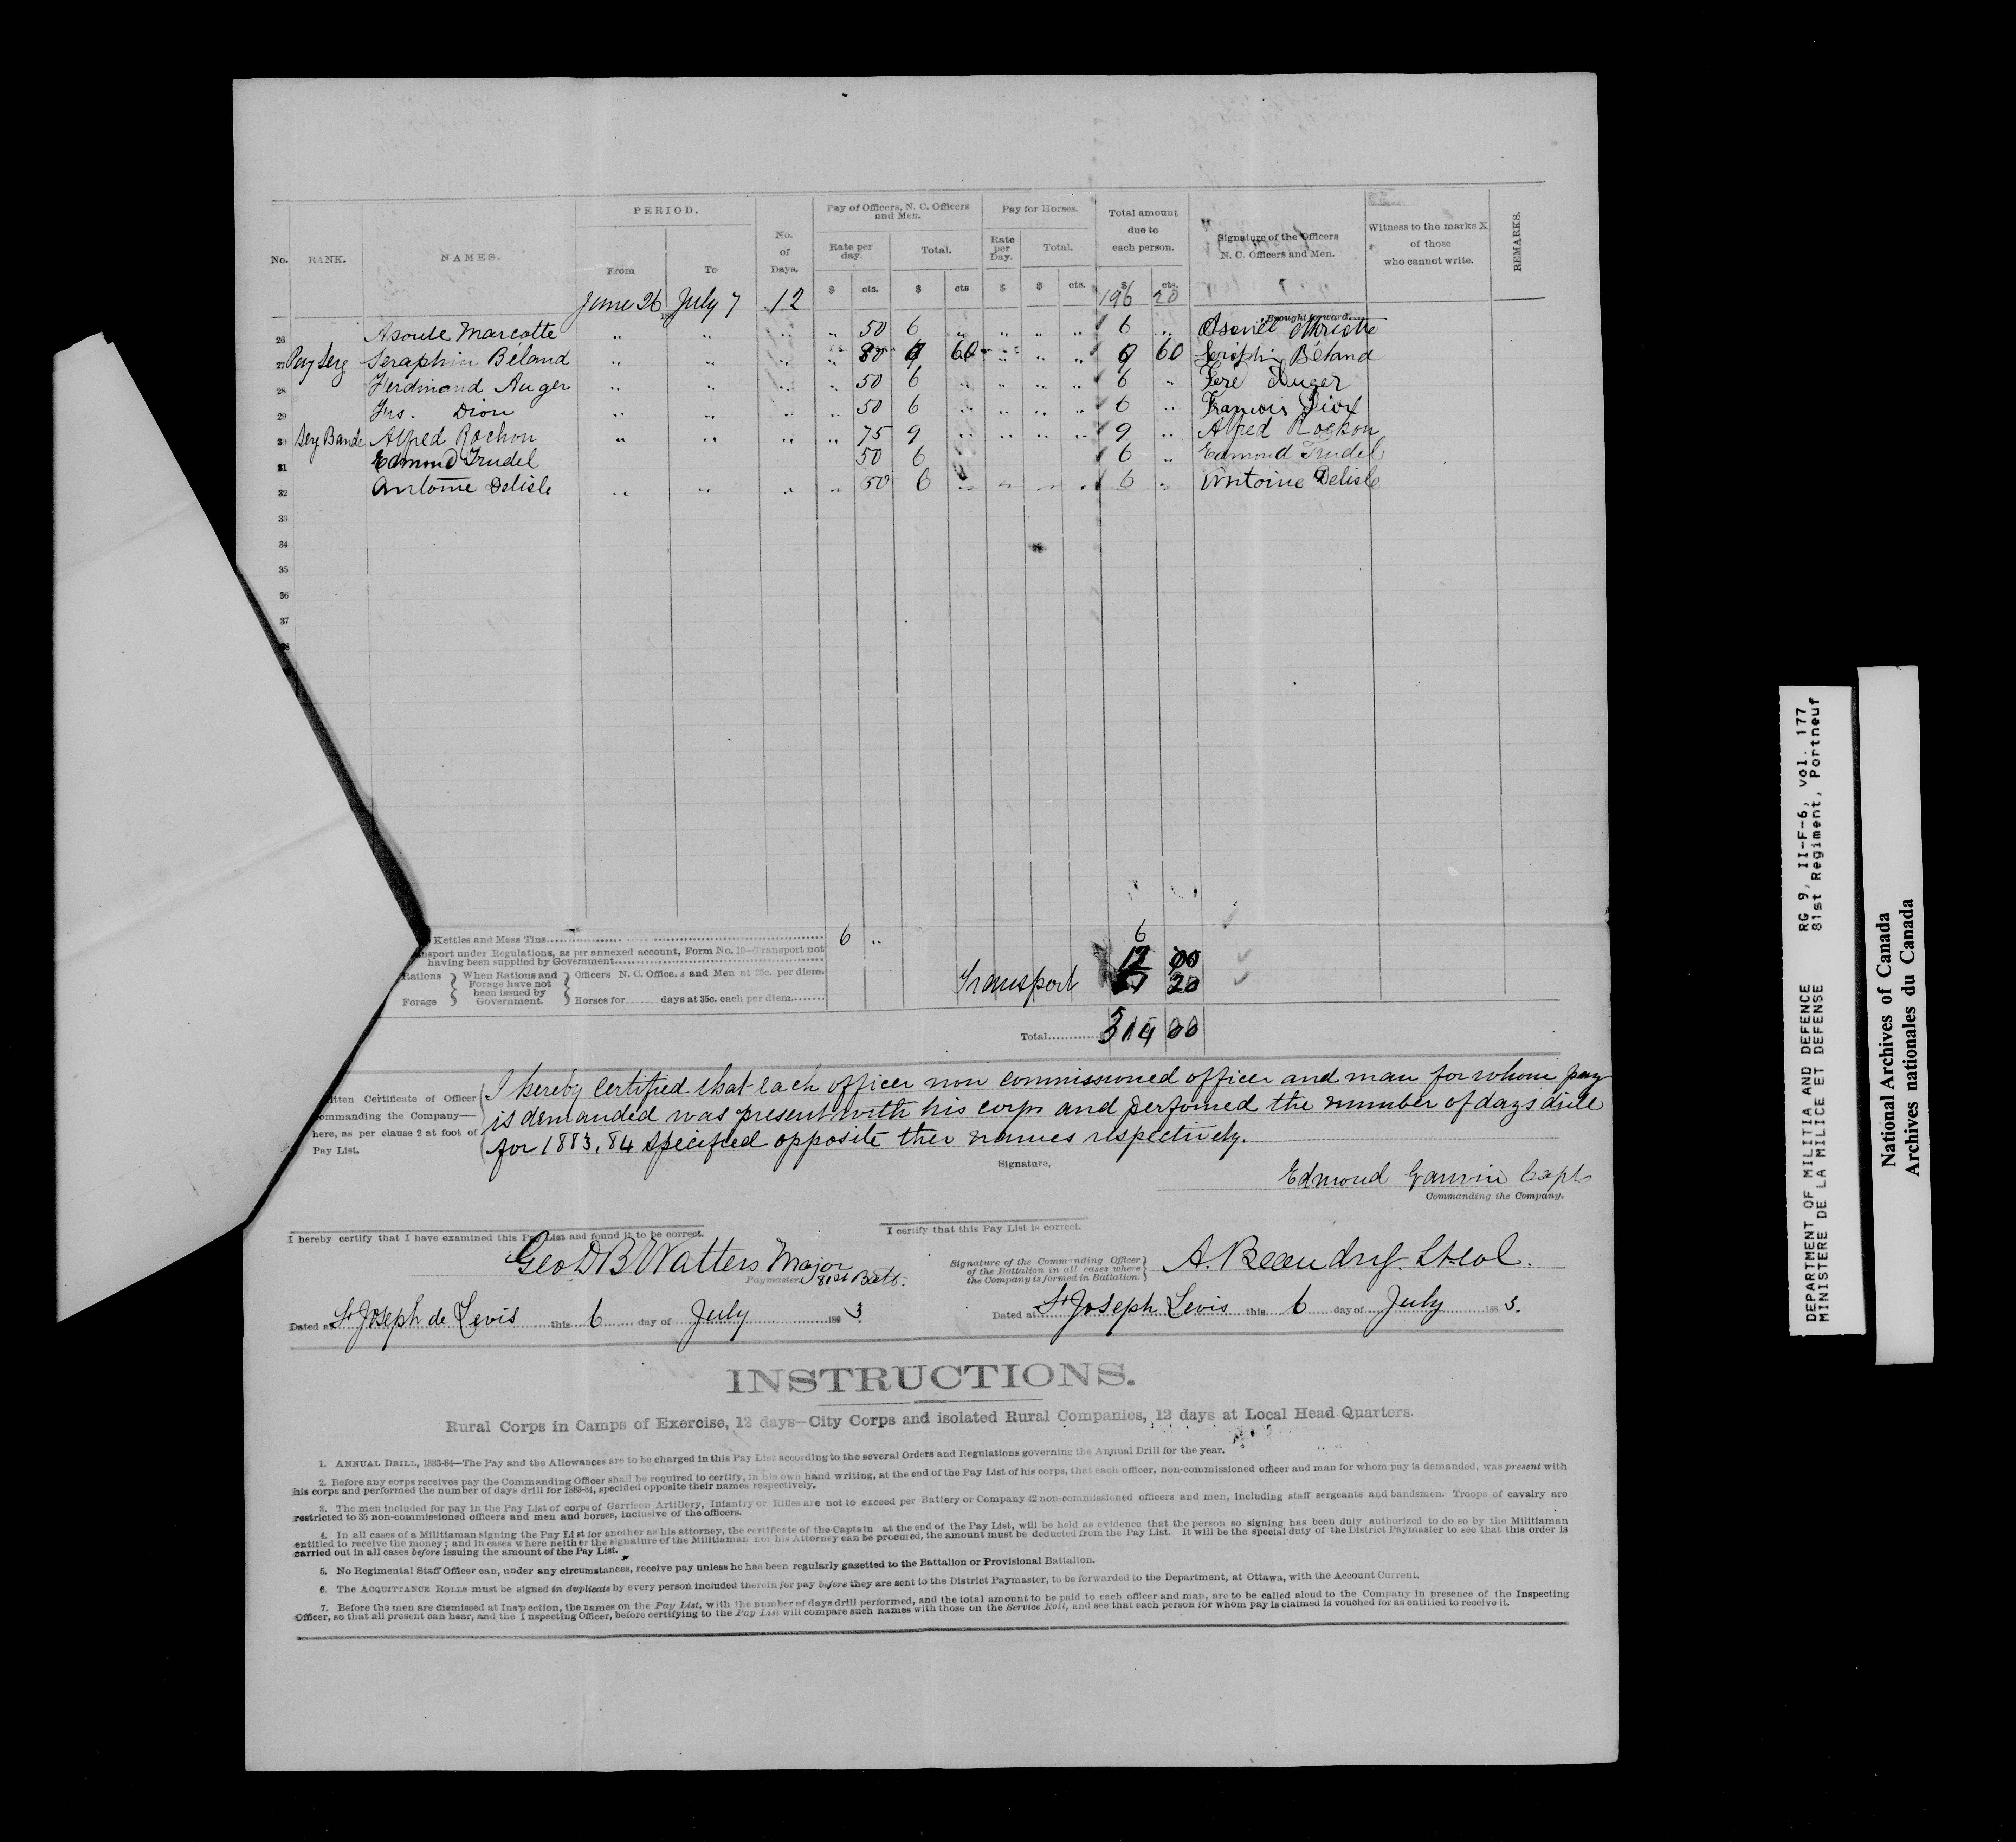 No. RANK. NAMES. PERIOD. From To No. of Days. Pay of Officers, N. C. Officers and Men. Rate per day. Total. Pay for Horses. Rate per Day. Total. Total amount due to each person. Signature of the Officers N. C. Officers and Men. Witness to the marks X of those who cannot write. REMARKS.
$ cts. $ cts $ $ cts. $ cts.
June 26 July 7 12 196 20
Brought forward....
26 Asoule Marcotte " " " " 50 6 " " " " 6 "
27 Pay Serg Seraphin Béland " " " " 80 9 60 " " " 9 60 Seraphin Béland
28 Ferdinand Auger " " " " 50 6 " " " " 6 " Ferd Auger
29 Frs. Dion " " " " 50 6 " " " " 6 " Francois Dion
30 Serg Bande Alfred Rochon " " " " 75 9 " " " " 9 " Alfred Rochon
31 Edmond Trudel 50 6 6 " Edmond Trudel
32 Antoine Delisle " " " " 50 6 " " " " 6 " Antoine Delisle
33
34
35
36
37
38
Kettles and Mess Tins 6 " 6
nsport under Regulations, as per annexed account, Form No. 10—Transport not
having been supplied by Government 12 00
Rations Forage } When Rations and Forage have not been issued by Government. } Officers N. C. Officers and Men at 25c. per diem.
Horses for days at 35c. each per diem.
Transport 20
Total
itten Certificate of Officer
ommanding the Company—
here, as per clause 2 at foot of
Pay List.
I hereby certified that each officer non commissioned officer and man for whom pay
is demanded was present with his corps and perfomed the number of days drill
for 1883.84 specified opposite ther names respectively.
Signature,
Edmond Capt
Commanding the Company.
I hereby certify that I have examined this Pay List and found it to be correct.
Geo D B Watters Major
Paymaster 81st Batt.
I certify that this Pay List is correct.
Signature of the Commanding Officer
of the Battalion in all cases where
the Company is formed in Battalion.
A. Beaudry Lt-col.
Dated at St Joseph de Levis this 6 day of July 1883.
Dated at St Joseph Levis this 6 day of July 1883.
INSTRUCTIONS.
Rural Corps in Camps of Exercise, 12 days—City Corps and isolated Rural Companies, 12 days at Local Head Quarters.
1. ANNUAL DRILL, 1883-84—The Pay and the Allowances are to be charged in this Pay List according to the several Orders and Regulations governing the Annual Drill for the year.
2. Before any corps receives pay the Commanding Officer shall be required to certify, in his own hand writing, at the end of the Pay List of his corps, that each officer, non-commissioned officer and man for whom pay is demanded, was present with
his corps and performed the number of days drill for 1883-84, specified opposite their names respectively.
3. The men included for pay in the Pay List of corps of Garrison Artillery, Infantry or Rifles are not to exceed per Battery or Company 42 non-commissioned officers and men, including staff sergeants and bandsmen. Troops of cavalry are
restricted to 35 non-commissioned officers and men and horses, inclusive of the officers.
4. In all cases of a Militiaman signing the Pay List for another as his attorney, the certificate of the Captain at the end of the Pay List, will be held as evidence that the person so signing has been duly authorized to do so by the Militiaman
entitled to receive the money; and in cases where neither the signature of the Militiaman nor his Attorney can be procured, the amount must be deducted from the Pay List. It will be the special duty of the District Paymaster to see that this order is
carried out in all cases before issuing the amount of the Pay List.
5. No Regimental Staff Officer can, under any circumstances, receive pay unless he has been regularly gazetted to the Battalion or Provisional Battalion.
6. The ACQUITTANCE ROLLS must be signed in duplicate by every person included therein for pay before they are sent to the District Paymaster, to be forwarded to the Department, at Ottawa, with the Account Current.
7. Before the men are dismissed at Inspection, the names on the Pay List, with the number of days drill performed, and the total amount to be paid to each officer and man, are to be called aloud to the Company in presence of the Inspecting
Officer, so that all present can hear, and the Inspecting Officer, before certifying to the Pay List will compare such names with those on the Service Roll, and see that each person for whom pay is claimed is vouched for as entitled to receive it.
DEPARTMENT OF MILITIA AND DEFENCE RG 9, II-F-6, vol. 177
MINISTERE DE LA MILICE ET DEFENSE 81st Regiment, Portneuf
National Archives of Canada
Archives nationales du Canada